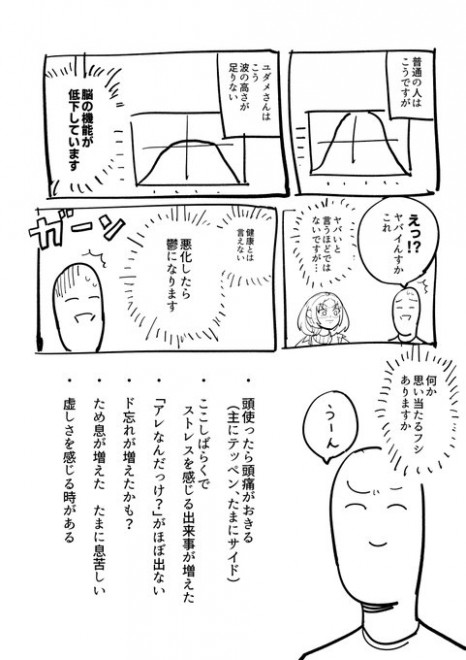 普通の人は
こうですが
ユダメさんは
こう
波の高さが
足りない
脳の機能が
低下しています
えっ!?
ヤバイんすか
これ
ヤバいと
言うほどでは
ないですが…
健康とは
言えない
悪化したら
鬱になります
ガーン
何か
思い当たるフシ
ありますか
うーん
・頭使ったら頭痛がおきる
(主にテッペン、たまにサイド)
・ここしばらくで
ストレスを感じる出来事が増えた
・「アレなんだっけ?」がほぼ出ない
・ド忘れが増えたかも?
・ため息が増えた たまに息苦しい
・虚しさを感じる時がある